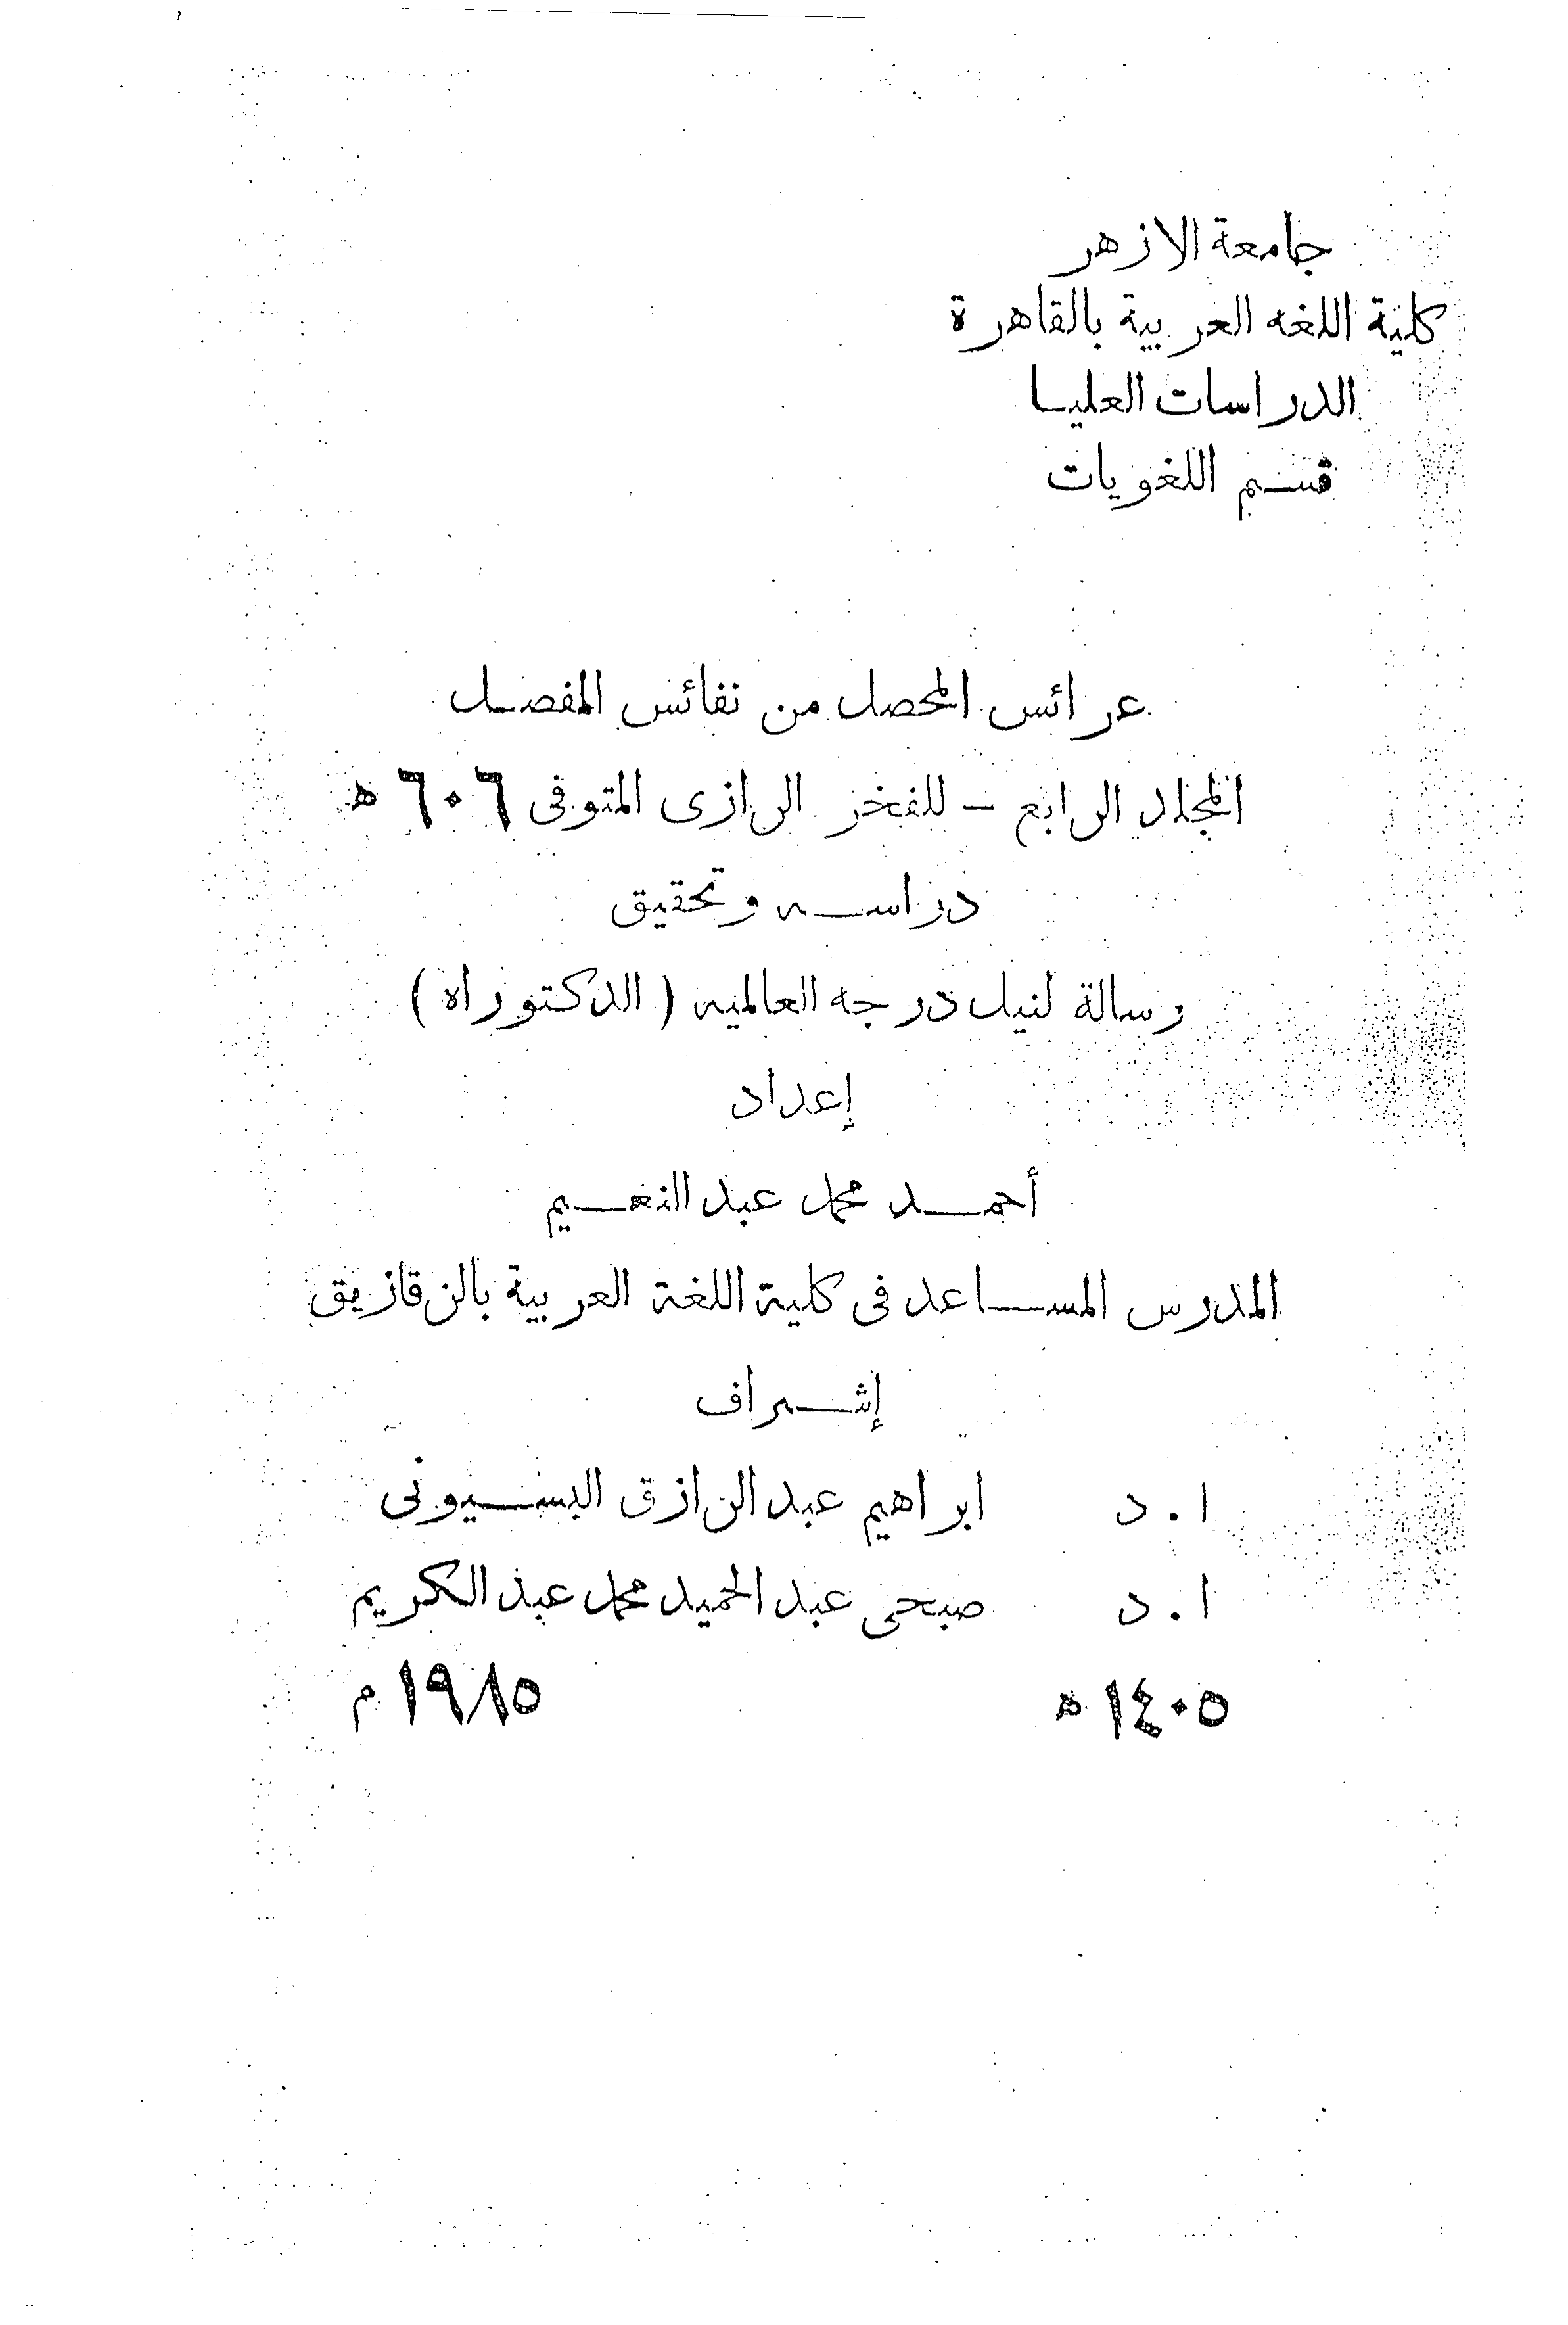 جامعة الازهر
كلية اللغه العربية بالقاهرة
الدراسات العليا
قسم اللغويات
عرائس المحصل من نفائس المفصل
المجلد الرابع - للفخر الرازى المتوفى ٦٠٦ ه
دراسه وتحقيق
رسالة لنيل درجه العالميه ( الدكتوراه )
إعداد
أحمد محمد عبد النعيم
المدرس المساعد فى كلية اللغة العربية بالزقازيق
إشراف
ا . د ابراهيم عبد الرازق البسيونى
ا . د صبحى عبد الحميد محمد عبد الكريم
١٤٠٥ ه ١٩٨٥ م